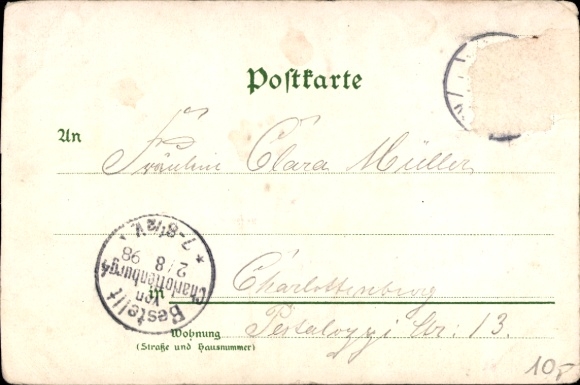 Postkarte
An
Fräulein Clara Müller
Bestellt
vom
Charlottenburg 4
2/8 98
* 7-8½V.
in
Charlottenburg
Wohnung
(Straße und Hausnummer)
Pestalozzi Str: 13.
10,-